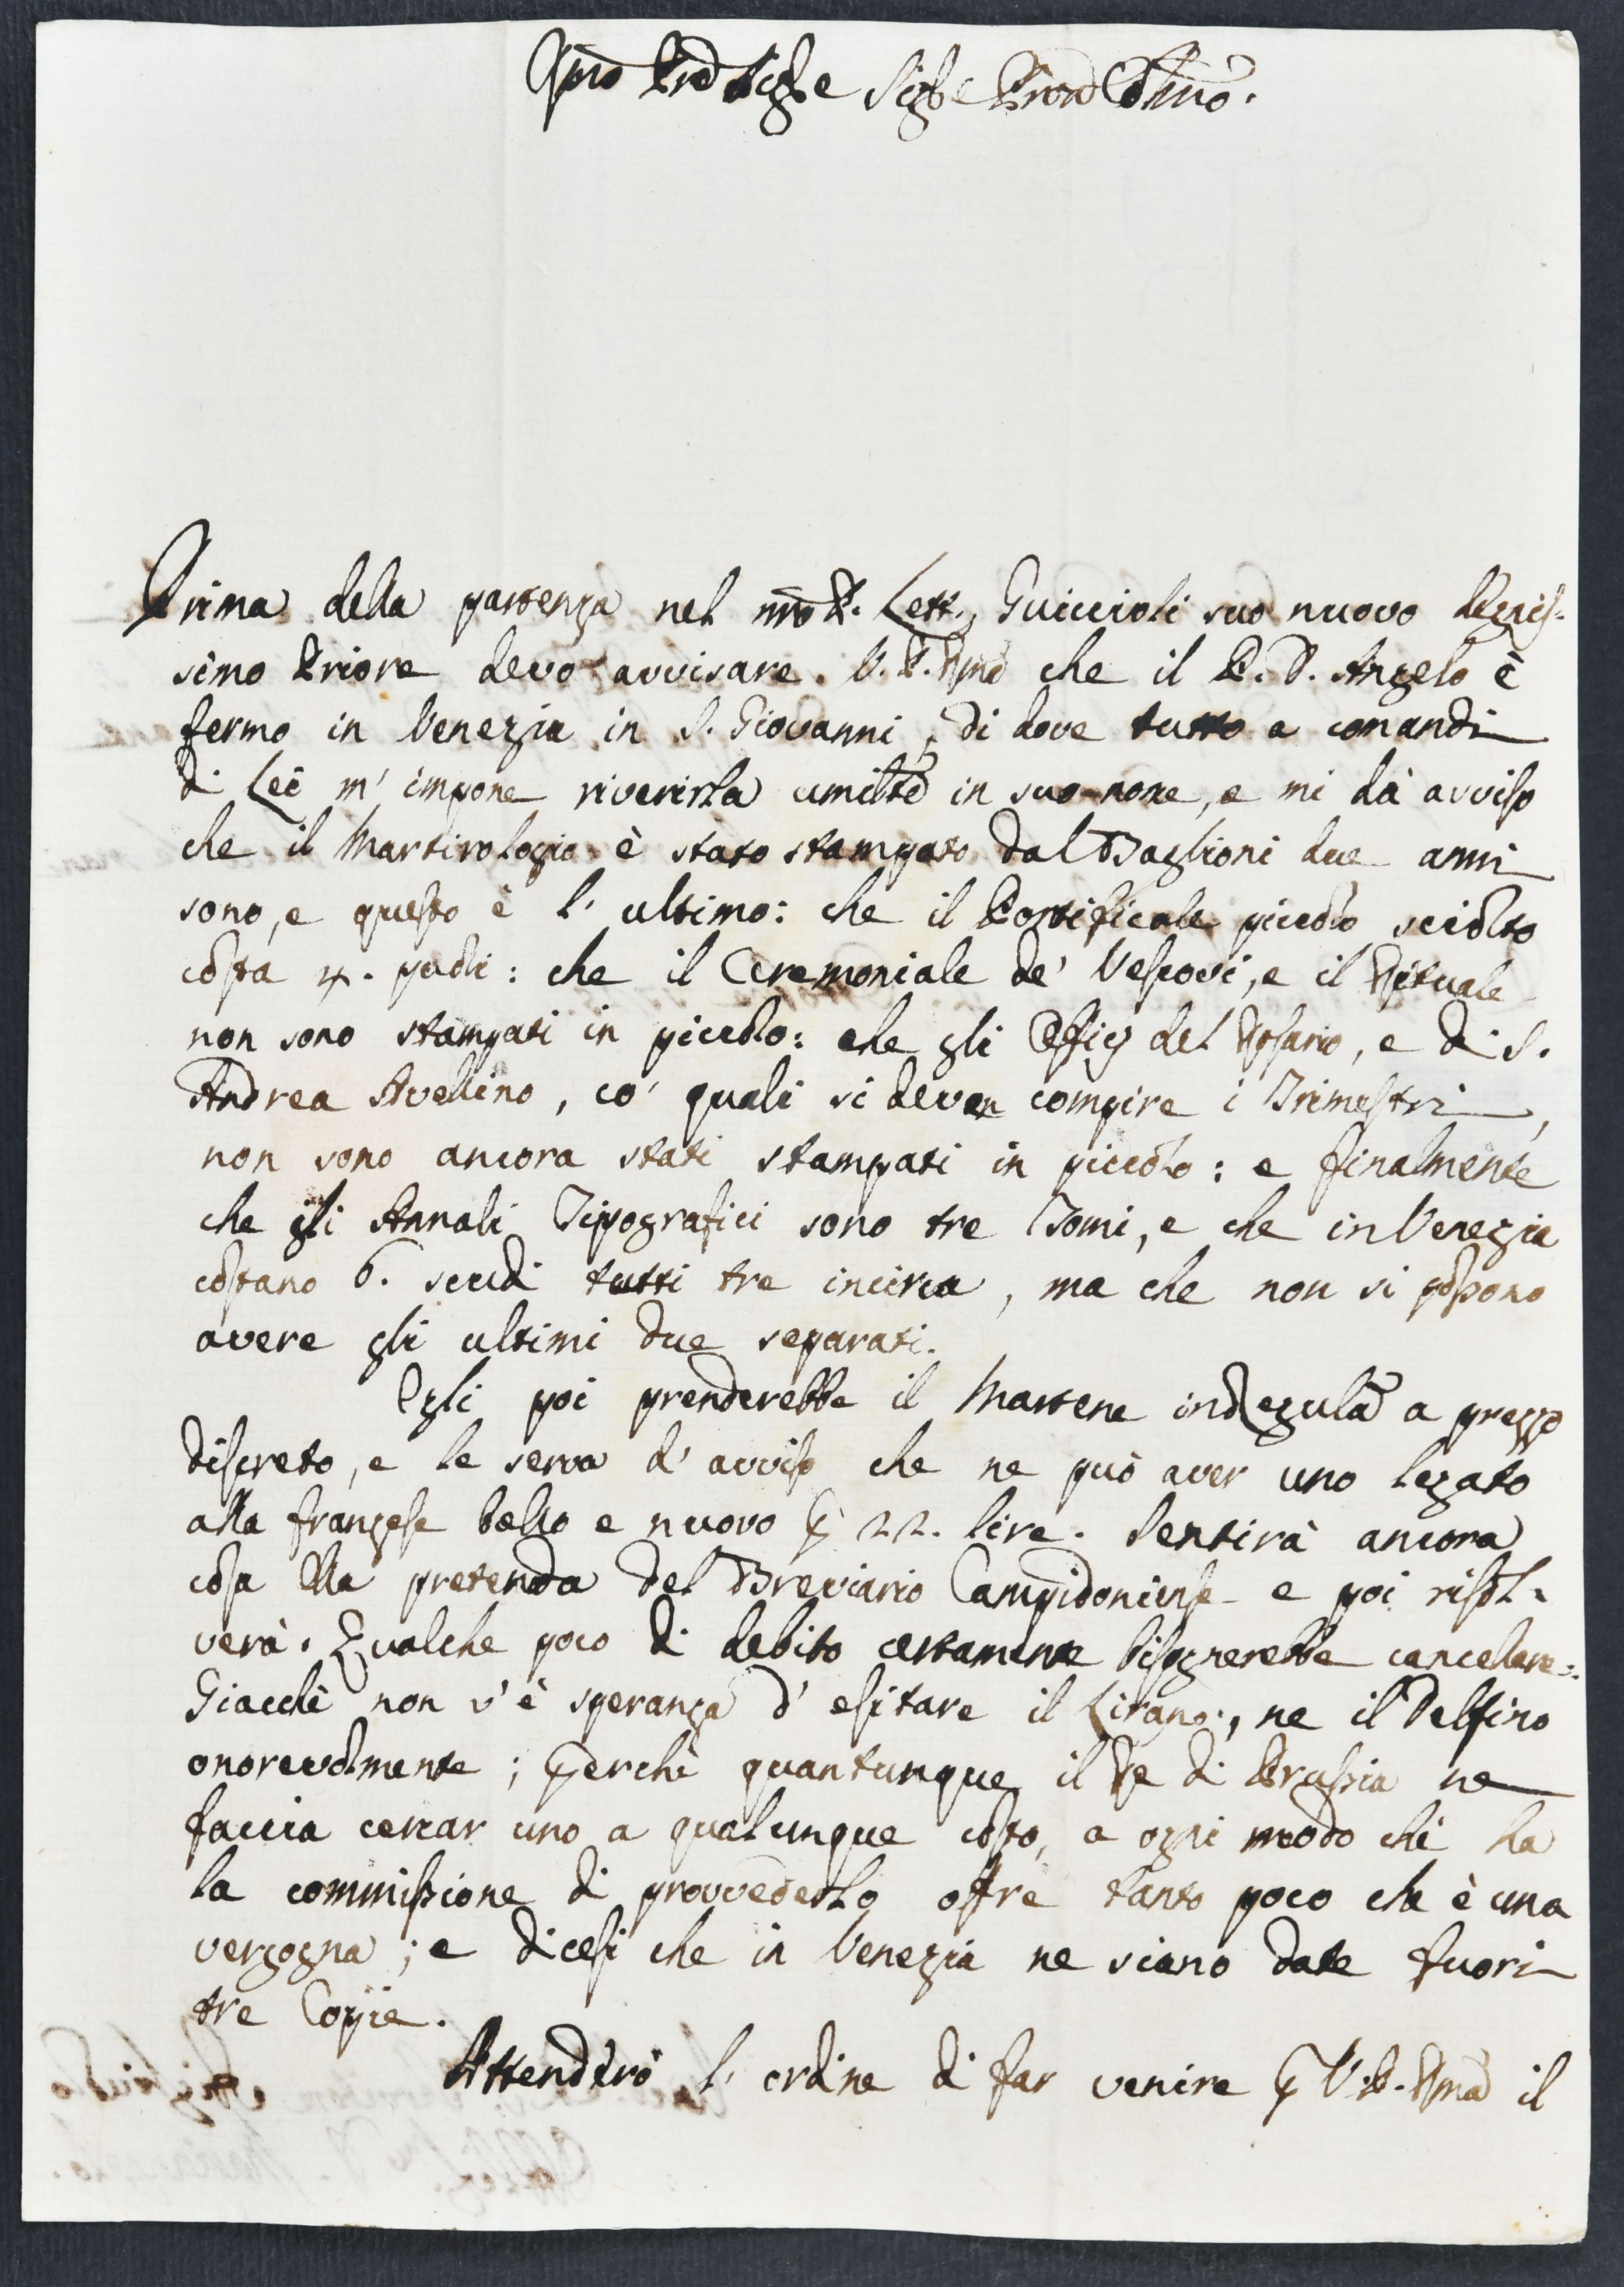 Rmo Pre Sigre Sigre Pron Colmo.
Prima della partenza nel nro P. Lett. Guiccioli suo nuovo degnis-
simo Priore devo avvisare V. P. Rma che il P. D. Angelo è
fermo in Venezia in S. Giovanni, di dove tutto a comandi
di Lei m' impone riverirla umilte in suo nome, e mi dà avviso
che il Martirologio è stato stampato dal Baglioni due anni
sono, e questo è l' ultimo: che il Pontificale piccolo sciolto
costa 4. paoli: che il Ceremoniale de' Vescovi, e il Rituale
non sono stampati in piccolo: che gli Offizj del Rosario, e di S.
Andrea Avellino, co' quali si deven compire i Trimestri,
non sono ancora stati stampati in piccolo: e finalmente
che gli Annali Tipografici sono tre Tomi, e che in Venezia
costano 6. scudi tutti tre incirca, ma che non si possono
avere gli ultimi due separati.
Egli poi prenderebbe il Martene in Regulā a prezzo
discreto, e le serva d' avviso che ne può aver uno legato
alla franzese bello e nuovo p 22. lire. Sentirà ancora
cosa Ella pretenda del Breviario Campidoniense e poi risol-
verà. Qualche poco di debito certamente bisognerebbe cancellare.
Giacchè non v' è speranza d' esitare il Lirano, ne il Delfino
onorevolmente; perchè quantunque il Re di Prussia ne
faccia cercar uno a qualunque costo, a ogni modo chi ha
la commissione di provvederlo offre tanto poco che è una
vergogna; e dicesi che in Venezia ne siano date fuori
tre Copie.
Attenderò l' ordine di far venire p V. P. Rma il